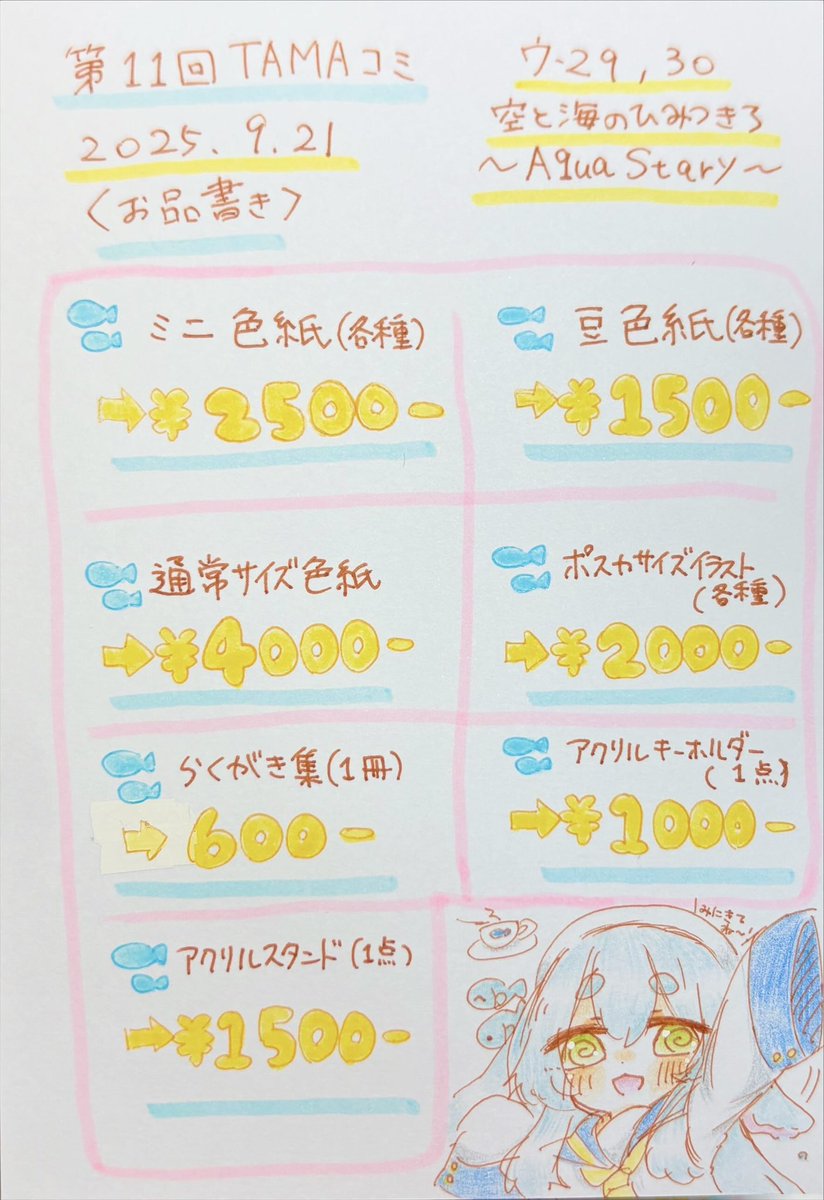 第11回TAMAコミ
2025.9.21
〈お品書き〉
ウ-29,30
空と海のひみつきろ
～Aqua Stary～
ミニ色紙(各種)
→¥2500-
豆色紙(各種)
→¥1500-
通常サイズ色紙
→¥4000-
ポスカサイズイラスト
(各種)
→¥2000-
らくがき集(1冊)
→600-
アクリルキーホルダー
(1点)
→¥1000-
アクリルスタンド(1点)
→¥1500-
みにきて
ね～!